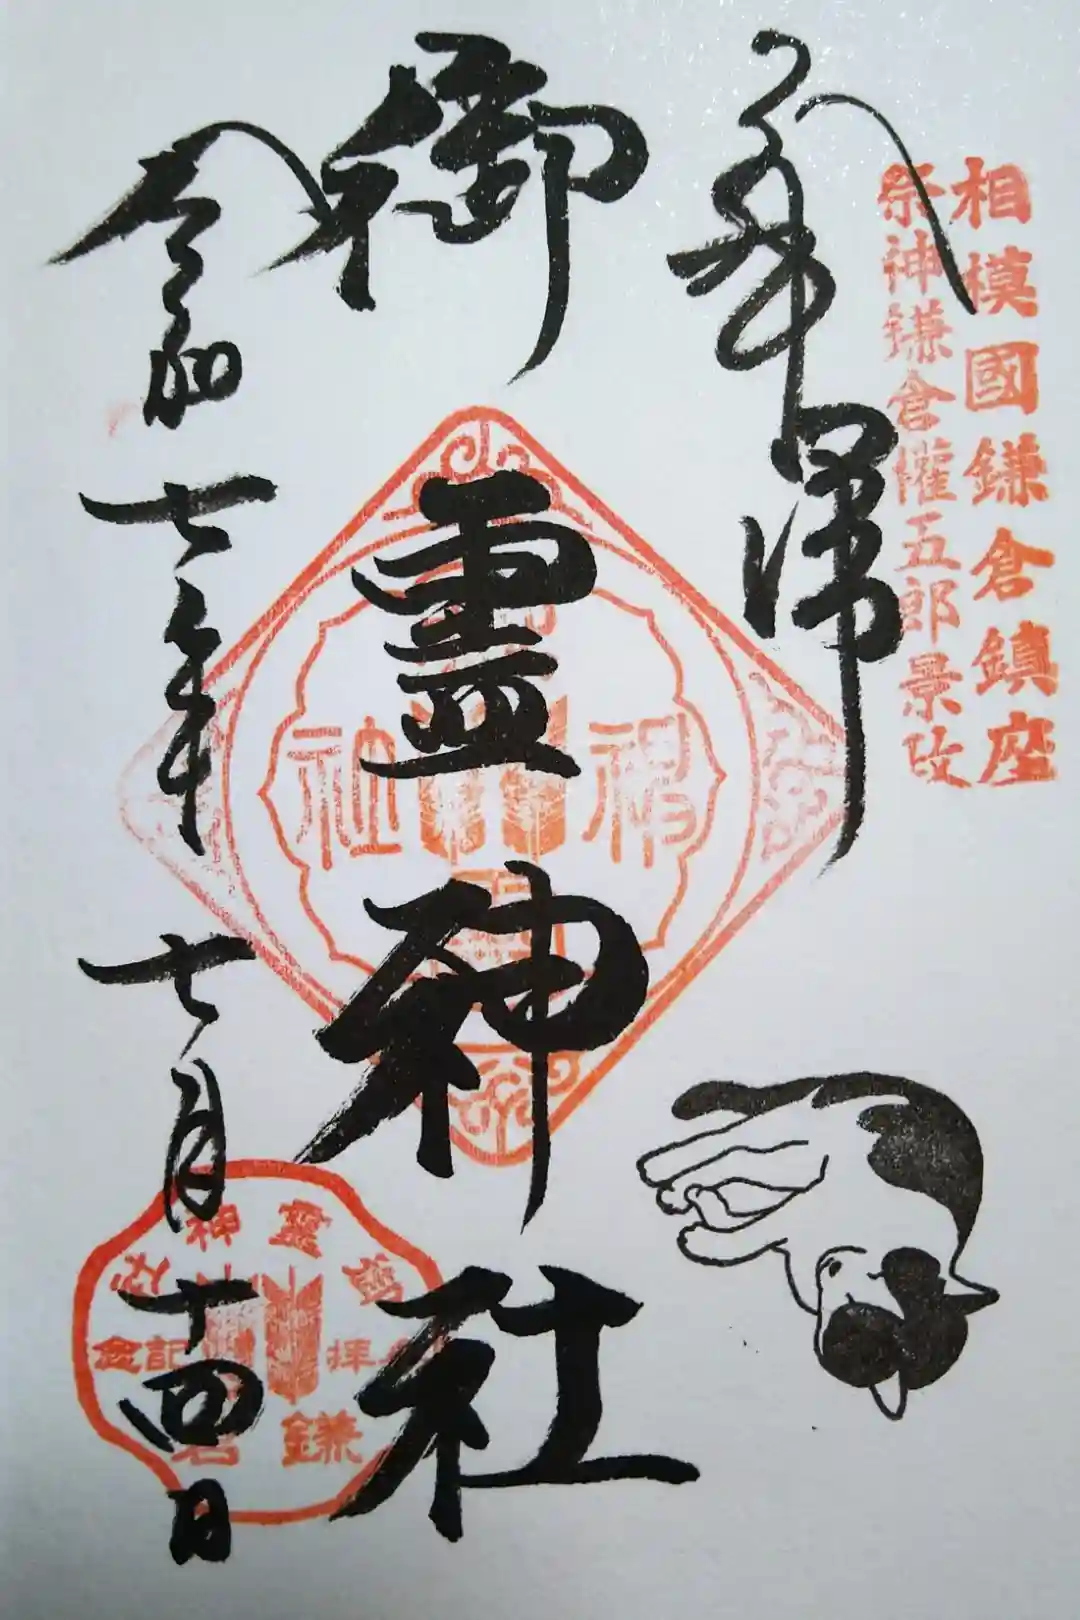 相模國鎌倉鎮座
祭神鎌倉權五郎景政
奉拝
御霊神社
令和七年七月十四日
靈神社
参拝記念
鎌倉